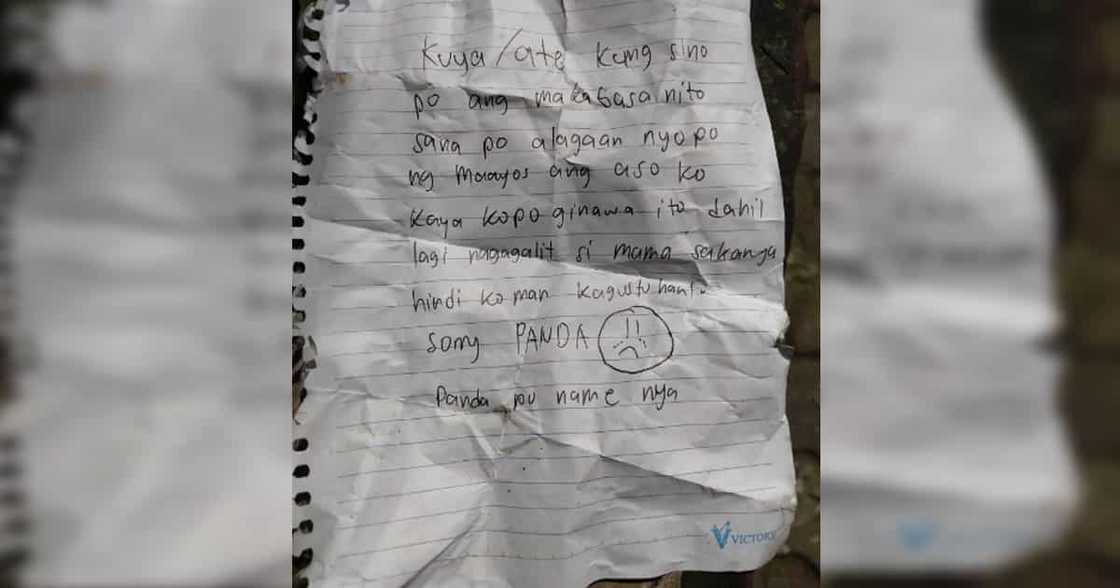 Kuya/ate kung sino
po ang makabasa nito
sana po alagaan nyo po
ng maayos ang aso ko
kaya kopo ginawa ito dahil
lagi nagagalit si mama sakanya
hindi ko man kagustuhan
sorry PANDA
Panda po name nya
VICTORY